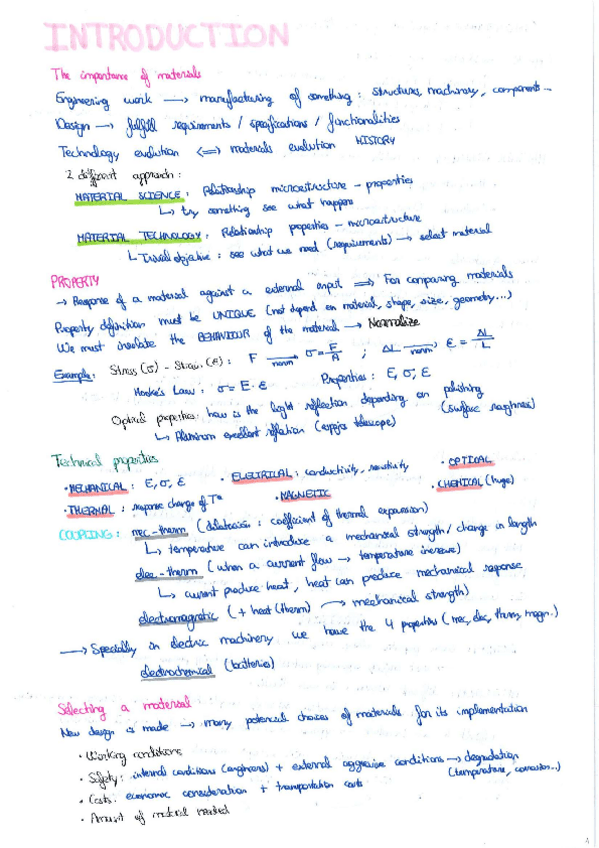 INTRODUCTION
The importance of materials
Engineering work → manufacturing of something: structures, machinery, components
Design → fulfill requirements / specifications / functionalities
Technology evolution <=> materials evolution HISTORY
2 different approach:
MATERIAL SCIENCE: Relationship microestructure - properties
↳ try something see what happens
MATERIAL TECHNOLOGY: Relationship properties - microestructure
↳ objective: see what we need (requirements) → select material
PROPERTY
→ Response of a material against a external input => For comparing materials
Property definition must be UNIQUE (not depend on material, shape, size, geometry...)
We must insolate the BEHAVIOUR of the material → Normalize
Example: Stress (σ) - Strain (ε): F → norm σ = F/A ; ΔL → norm ε = ΔL/L
Hooke's Law: σ = E · ε Properties: E, σ, ε
Optical properties: how is the light reflection depending on polishing (surface roughness)
↳ Aluminum excellent reflation (espejos telescope)
Technical properties
· MECHANICAL: E, σ, ε · ELECTRICAL: conductivity, resistivity · OPTICAL
· THERMAL: response change of Tª · MAGNETIC · CHEMICAL (huge)
COUPLING: mec-therm (dilatación: coefficient of thermal expansion)
↳ temperature can introduce a mechanical strength / change in length
elec-therm (when a current flow → temperature increase)
↳ current produce heat, heat can produce mechanical response
electromagnetic (+ heat (therm) → mechanical strength)
→ Specially in electric machinery we have the 4 properties (mec, elec, therm, magn.)
electrochemical (batteries)
Selecting a material
New design is made → many potencial choices of materials for its implementation
· Working conditions
· Safety: internal conditions (engineers) + external aggressive conditions → degradation (temperature, corrosion..)
· Costs: economic consideration + transportation costs
· Amount of material needed